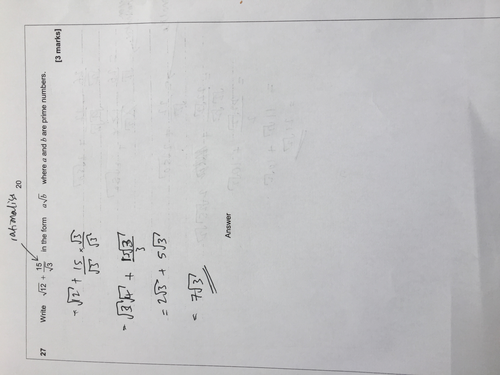 rationalise 20
27 Write √12 + 15/√3 in the form a√b where a and b are prime numbers.
[3 marks]
= √12 + 15/√3 × √3/√3
= √3√4 + 15√3/3
= 2√3 + 5√3
= 7√3
Answer